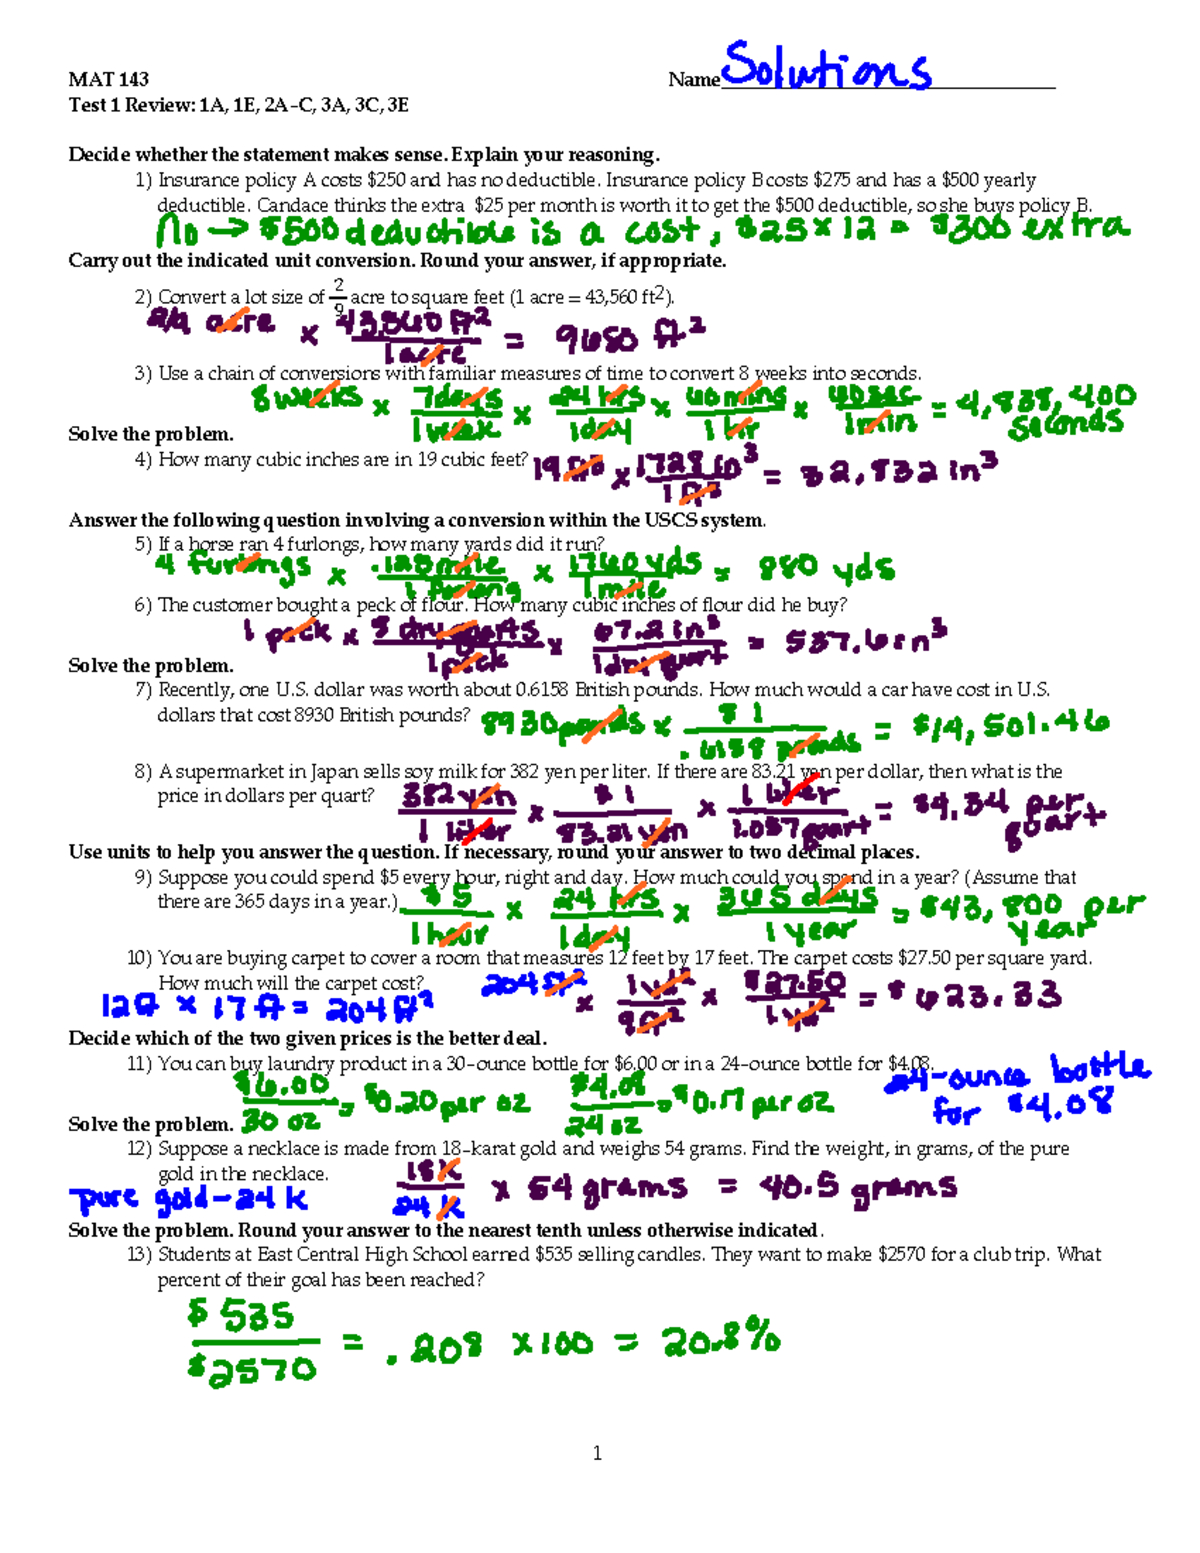 MAT 143 Name Solutions
Test 1 Review: 1A, 1E, 2A–C, 3A, 3C, 3E
Decide whether the statement makes sense. Explain your reasoning.
1) Insurance policy A costs $250 and has no deductible. Insurance policy B costs $275 and has a $500 yearly
deductible. Candace thinks the extra $25 per month is worth it to get the $500 deductible, so she buys policy B.
No → $500 deductible is a cost, $25 × 12 = $300 extra
Carry out the indicated unit conversion. Round your answer, if appropriate.
2) Convert a lot size of 2/9 acre to square feet (1 acre = 43,560 ft2).
2/9 acre × 43,560 ft² / 1 acre = 9680 ft²
3) Use a chain of conversions with familiar measures of time to convert 8 weeks into seconds.
8 weeks × 7 days / 1 week × 24 hrs / 1 day × 60 mins / 1 hr × 60 sec / 1 min = 4,838,400 seconds
Solve the problem.
4) How many cubic inches are in 19 cubic feet? 19 ft³ × 1728 in³ / 1 ft³ = 32,832 in³
Answer the following question involving a conversion within the USCS system.
5) If a horse ran 4 furlongs, how many yards did it run?
4 furlongs × .125 mile / 1 furlong × 1760 yds / 1 mile = 880 yds
6) The customer bought a peck of flour. How many cubic inches of flour did he buy?
1 peck × 8 dry quarts / 1 peck × 67.2 in³ / 1 dry quart = 537.6 in³
Solve the problem.
7) Recently, one U.S. dollar was worth about 0.6158 British pounds. How much would a car have cost in U.S.
dollars that cost 8930 British pounds? 8930 pounds × $1 / .6158 pounds = $14,501.46
8) A supermarket in Japan sells soy milk for 382 yen per liter. If there are 83.21 yen per dollar, then what is the
price in dollars per quart? 382 yen / 1 liter × $1 / 83.21 yen × 1 liter / 1.057 quart = $4.34 per quart
Use units to help you answer the question. If necessary, round your answer to two decimal places.
9) Suppose you could spend $5 every hour, night and day. How much could you spend in a year? (Assume that
there are 365 days in a year.) $5 / 1 hour × 24 hrs / 1 day × 365 days / 1 year = $43,800 per year
10) You are buying carpet to cover a room that measures 12 feet by 17 feet. The carpet costs $27.50 per square yard.
How much will the carpet cost? 204 ft² × 1 yd² / 9 ft² × $27.50 / 1 yd² = $623.33
12 ft × 17 ft = 204 ft²
Decide which of the two given prices is the better deal.
11) You can buy laundry product in a 30–ounce bottle for $6.00 or in a 24–ounce bottle for $4.08.
$6.00 / 30 oz = $0.20 per oz $4.08 / 24 oz = $0.17 per oz 24-ounce bottle for $4.08
Solve the problem.
12) Suppose a necklace is made from 18–karat gold and weighs 54 grams. Find the weight, in grams, of the pure
gold in the necklace.
pure gold - 24 k 18 k / 24 k × 54 grams = 40.5 grams
Solve the problem. Round your answer to the nearest tenth unless otherwise indicated.
13) Students at East Central High School earned $535 selling candles. They want to make $2570 for a club trip. What
percent of their goal has been reached?
$535 / $2570 = .208 × 100 = 20.8%
1